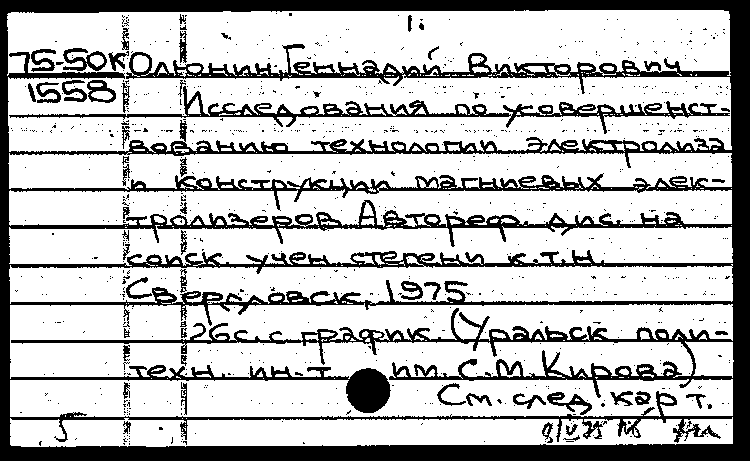 1.
75-50К Олюнин, Геннадий Викторович
1558
Исследования по усовершенст-
вованию технологии электролиза
и конструкции магниевых элек-
тролизеров. Автореф. дис. на
соиск. учен. степени к.т.н.
Свердловск, 1975
26с. с график. (Уральск поли-
техн. ин-т им. С.М. Кирова)
См. след. карт.
5